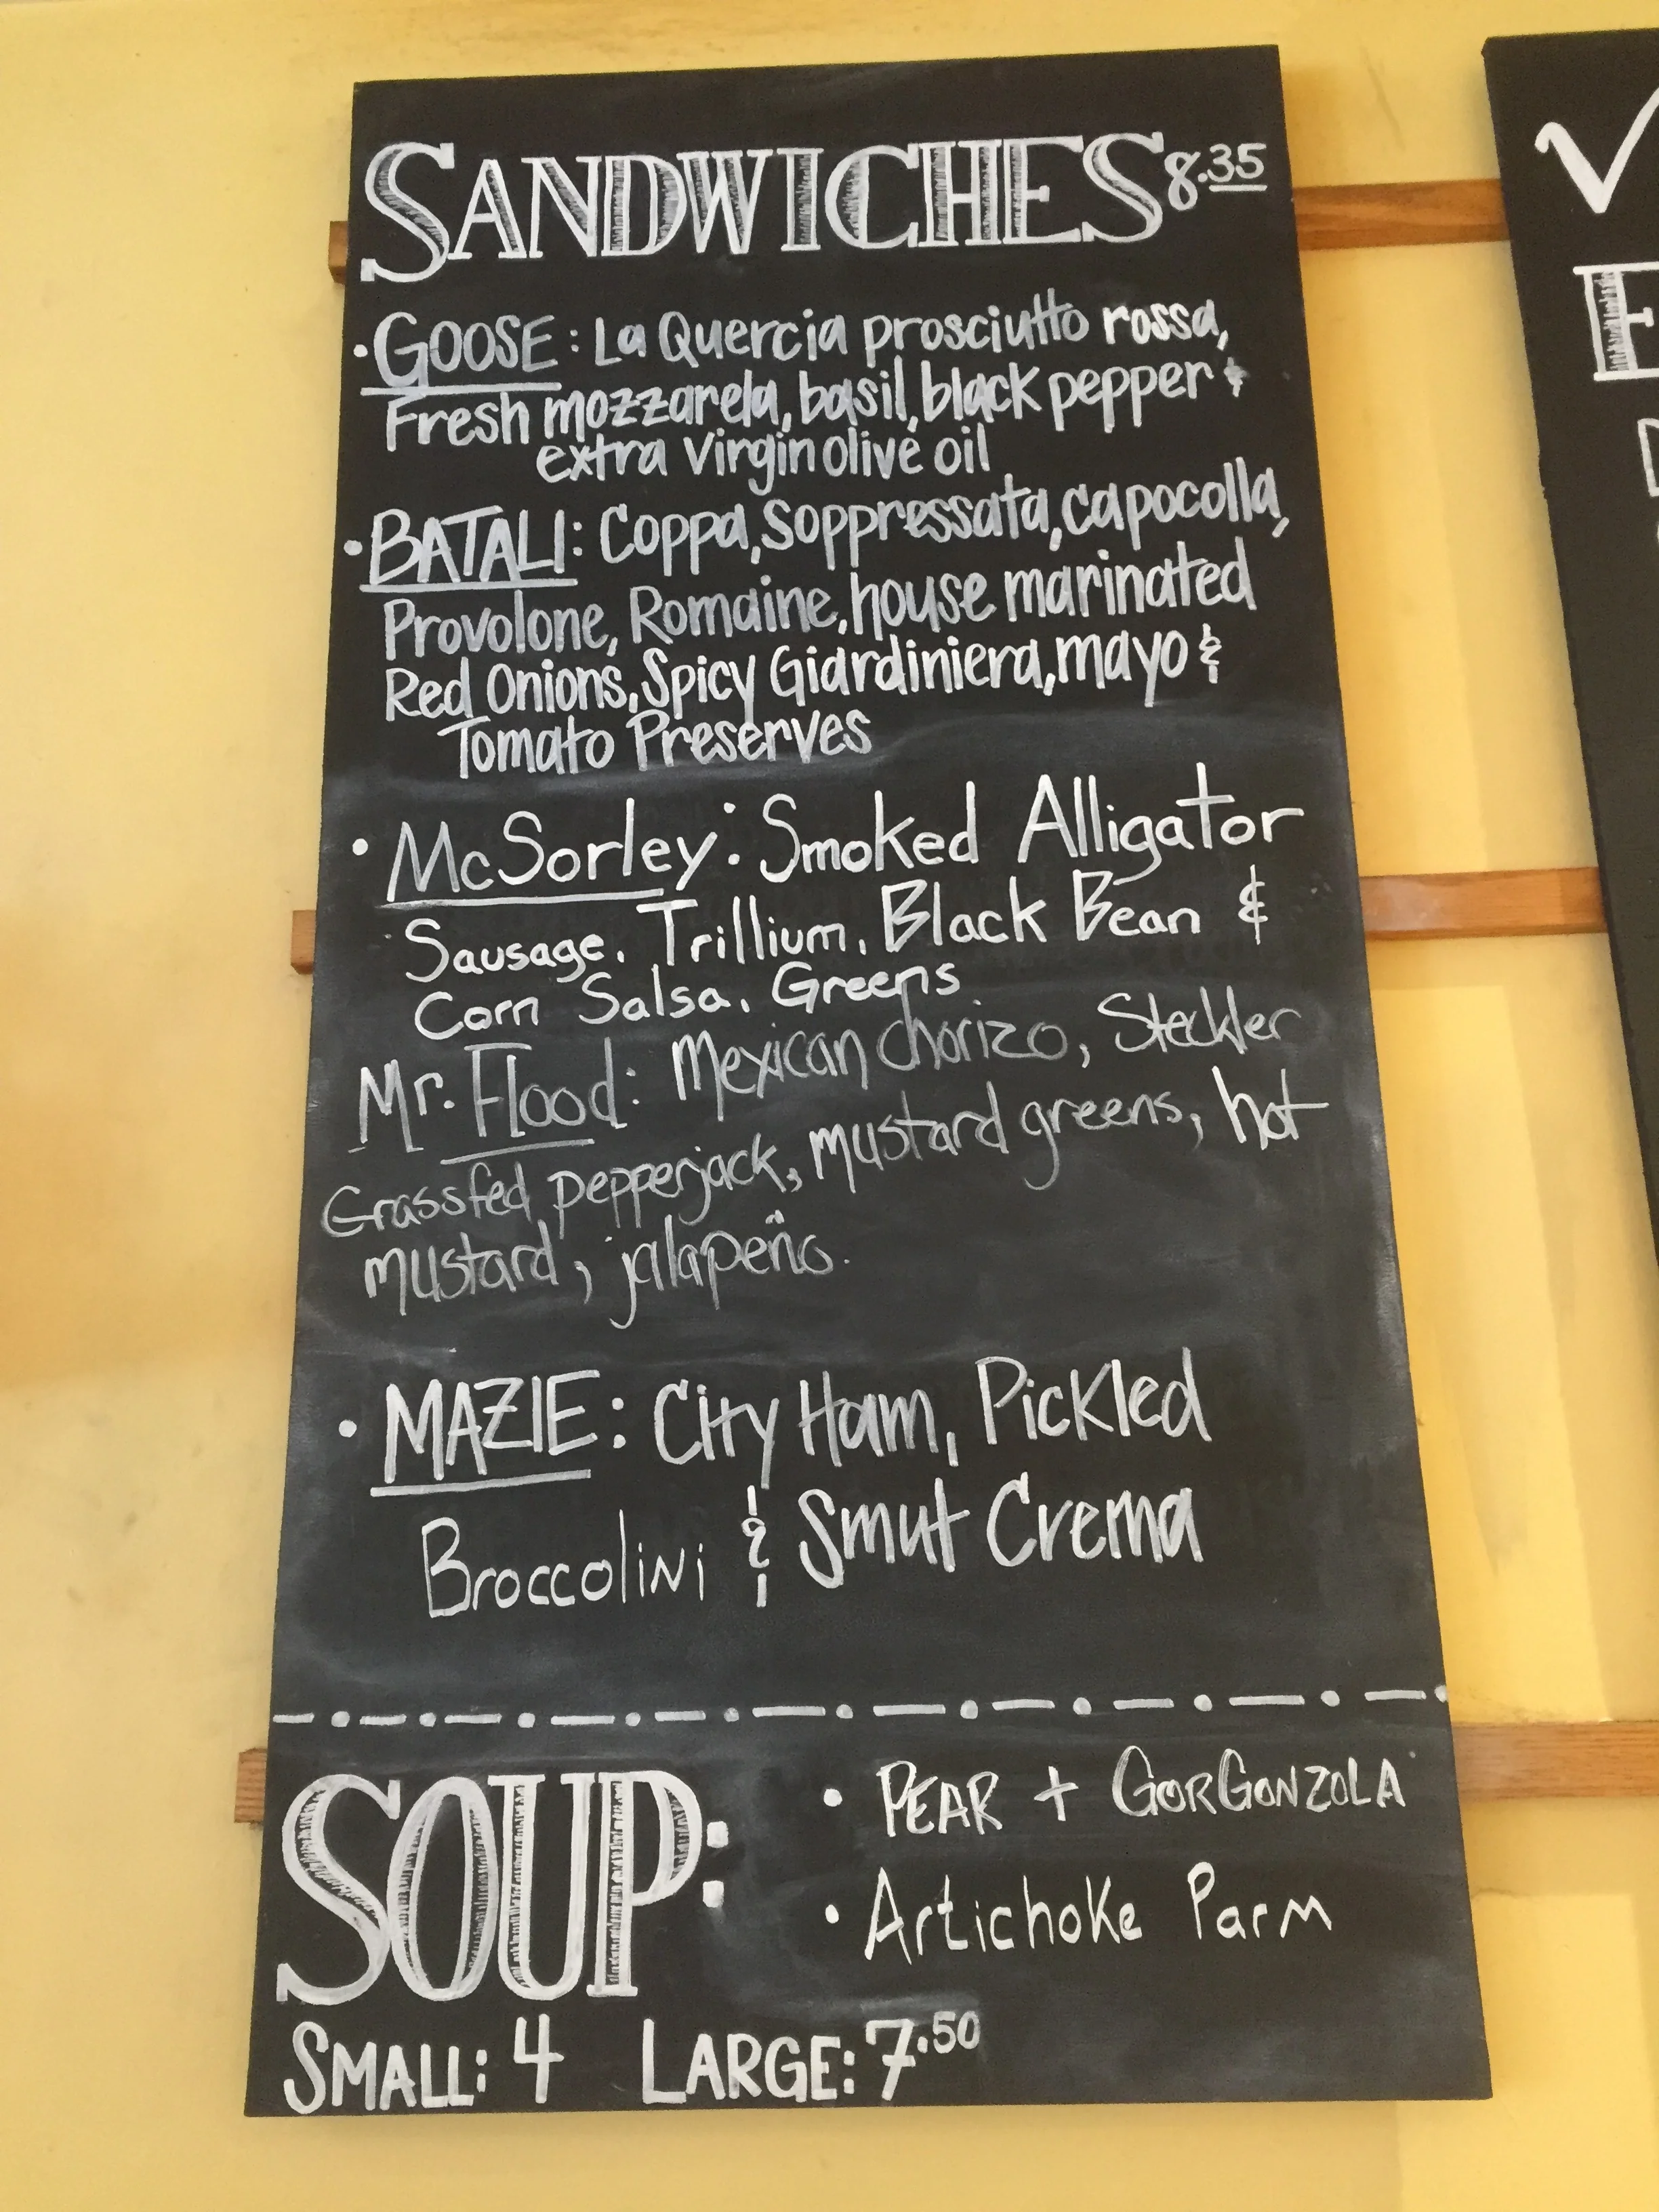 SANDWICHES 8.35
• GOOSE: La Quercia prosciutto rossa,
Fresh mozzarela, basil, black pepper &
extra virgin olive oil
• BATALI: Coppa, Soppressata, capocolla,
Provolone, Romaine, house marinated
Red Onions, Spicy Giardiniera, mayo &
Tomato Preserves
• McSorley: Smoked Alligator
Sausage, Trillium, Black Bean &
Corn Salsa, Greens
Mr. Flood: Mexican chorizo, Steckler
Grassfed pepperjack, mustard greens, hot
mustard, jalapeño.
• MAZIE: City Ham, Pickled
Broccolini & Smut Crema
SOUP:
• PEAR + GORGONZOLA
• Artichoke Parm
SMALL: 4 LARGE: 7.50